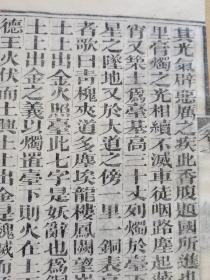 其光氣辟惡厲之疾此香腹題國所進也
里膏燭之光相續不滅車徒咽路塵起
宵又築土爲臺基高三十丈列燭於臺
星之墜地又於大道之傍一里一銅表
者歌曰青槐夾道多塵埃龍樓鳳闕望
土上出金火照臺此七字是妖辭也爲
土上出金之義以燭置臺下則火在土
德王火伏而土興土上出金是魏滅而